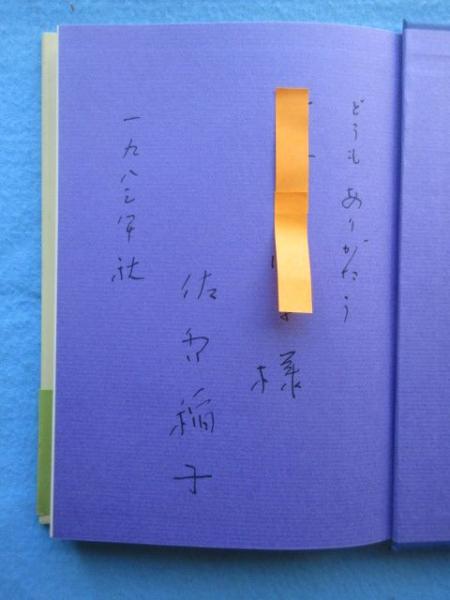 どうも ありがたう
様
佐多稲子
一九八三年秋